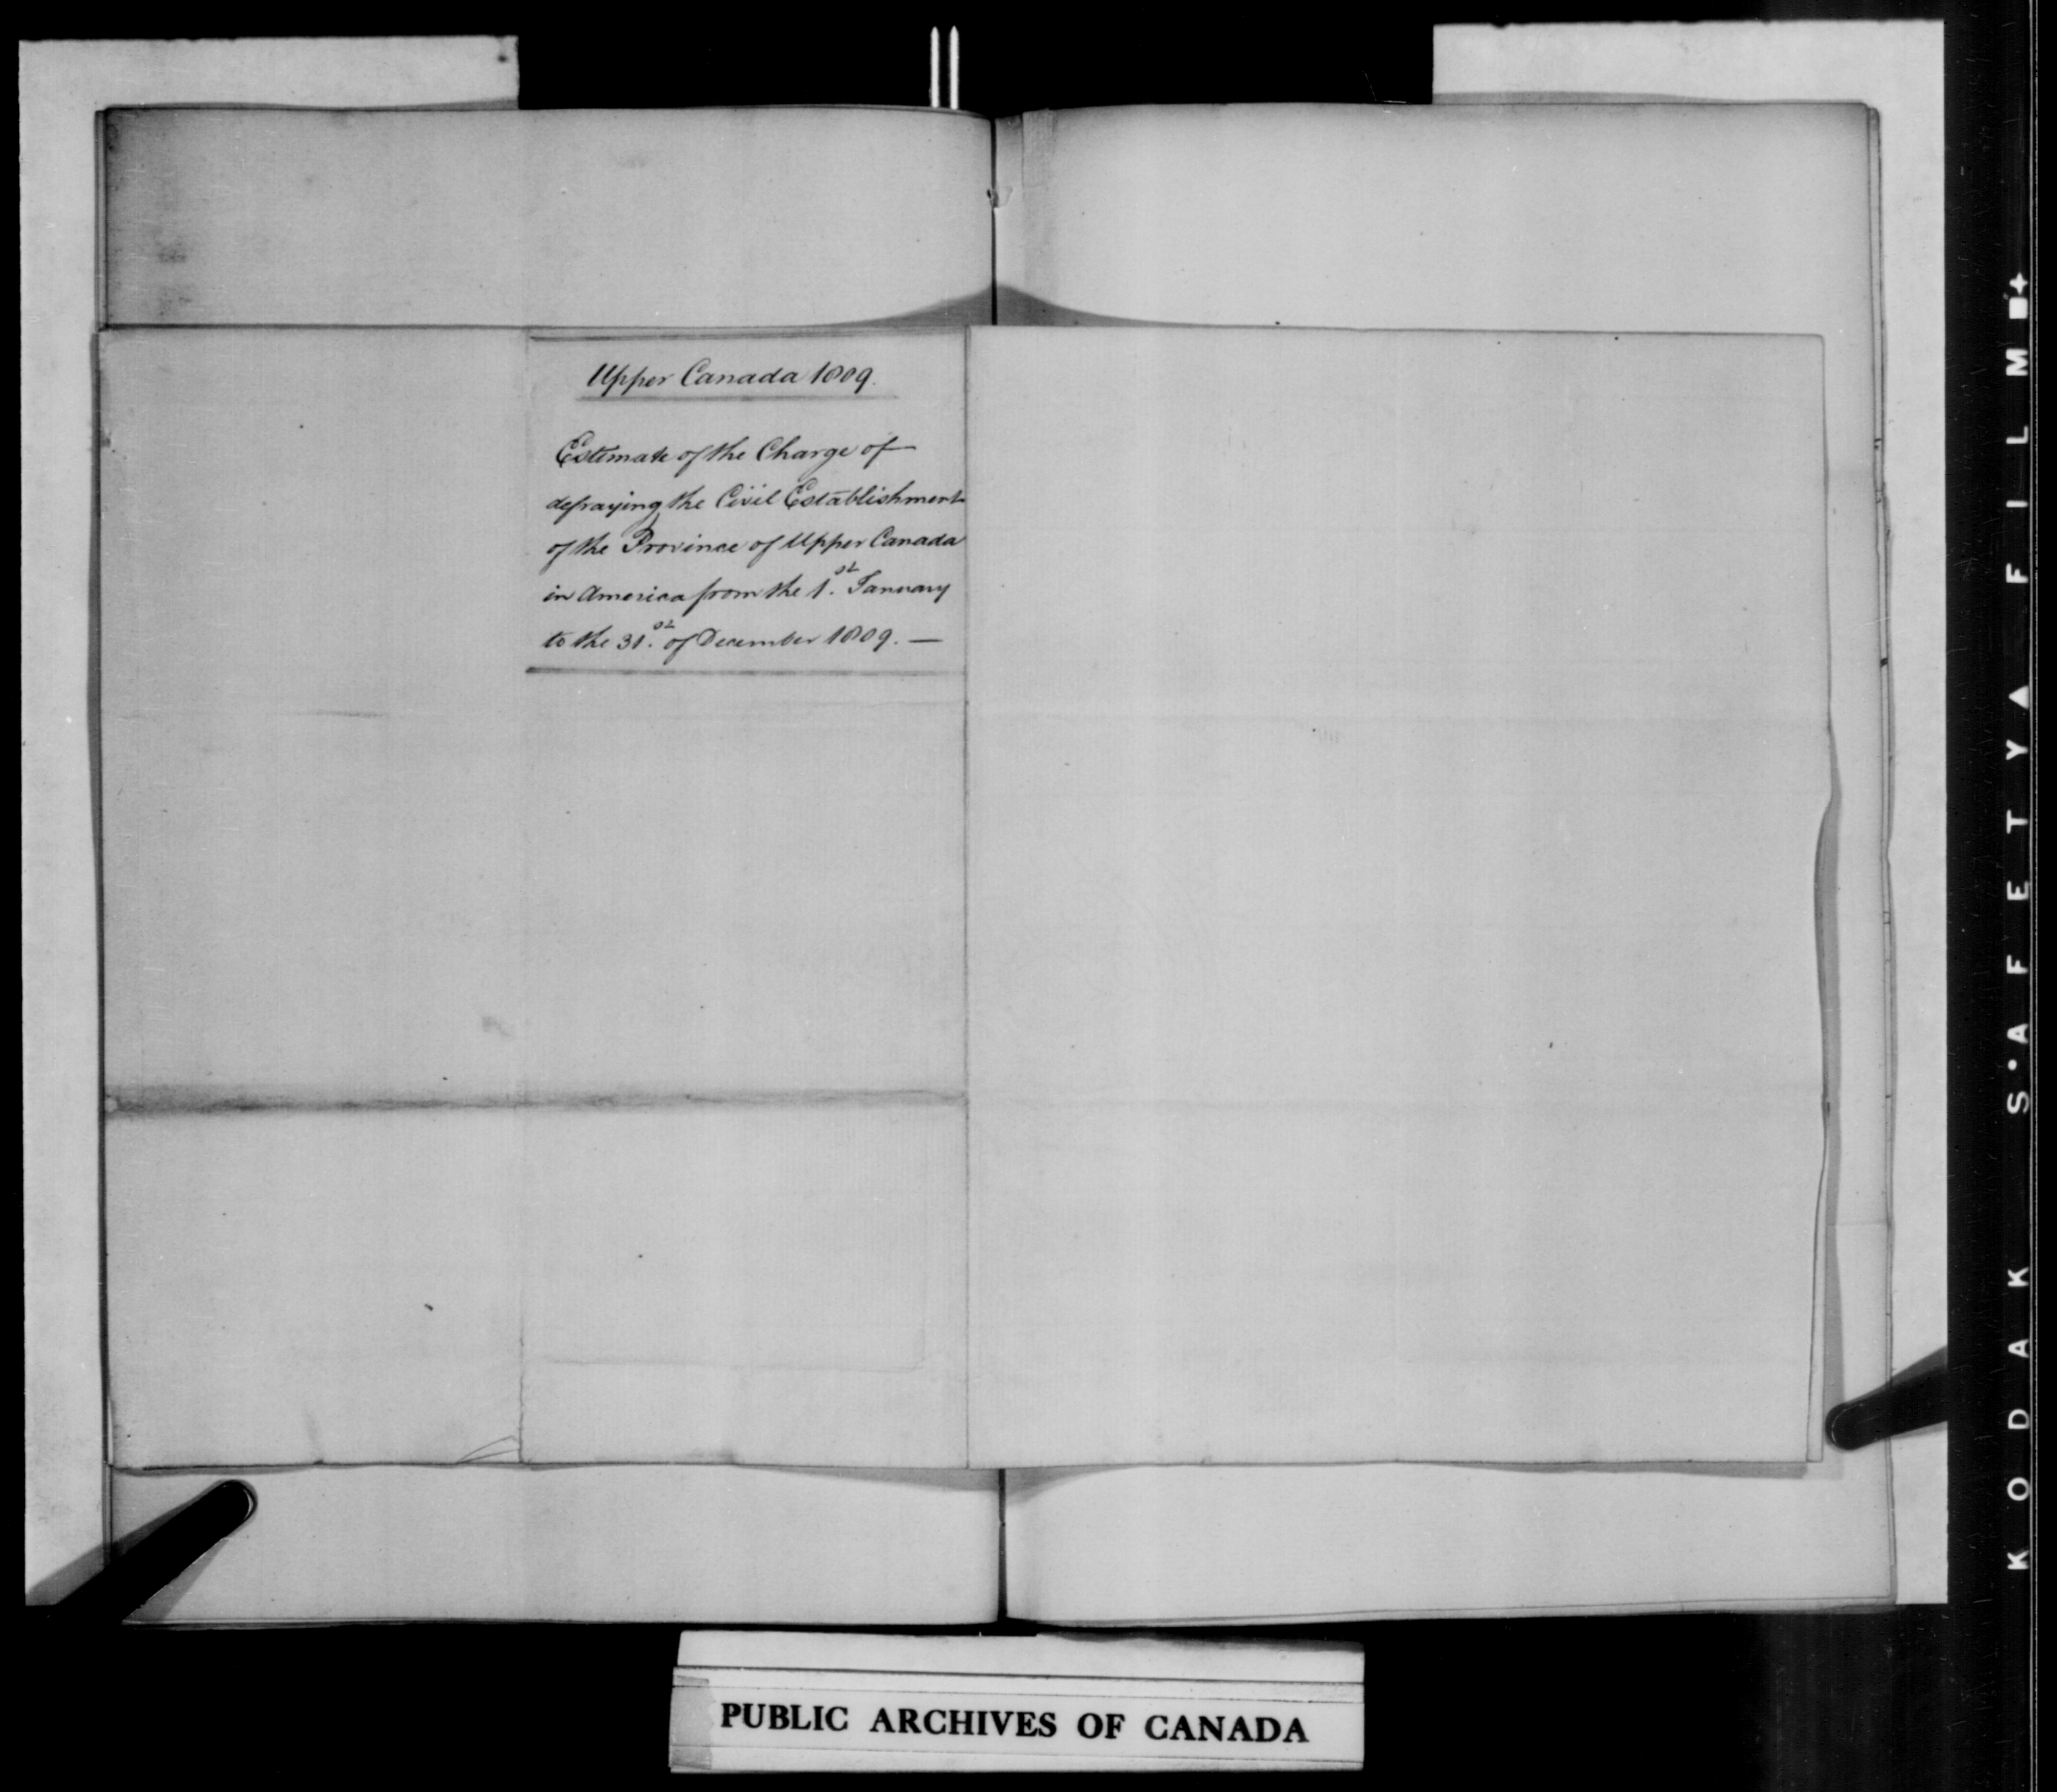 Upper Canada 1809.
Estimate of the Charge of
defraying the Civil Establishment
of the Province of Upper Canada
in America from the 1.st January
to the 31.st of December 1809. —
PUBLIC ARCHIVES OF CANADA
KODAK S.AFETY▲FILM